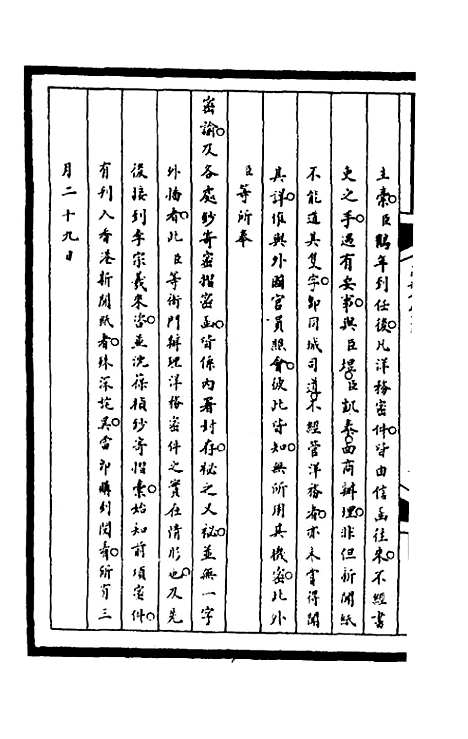 主稾臣鶴年到任後凡洋務密件皆由信函往来不經書
吏之手遇有要事與臣堤臣凱泰面商辦理非但新聞紙
不能道其隻字即同城司道不經管洋務者亦未嘗得聞
其詳惟與外國官員照會彼此皆知無所用其機密此外
臣等所奉
密諭及各處鈔寄密摺密函皆係内署封存祕之又祕並無一字
外播者此臣等衙門辦理洋務密件之實在情形也及先
後接到李宗羲来咨並沈葆楨鈔寄摺稾始知前項密件
有刊入香港新聞紙者殊深詫異當即購到閱看所有三
月二十九日